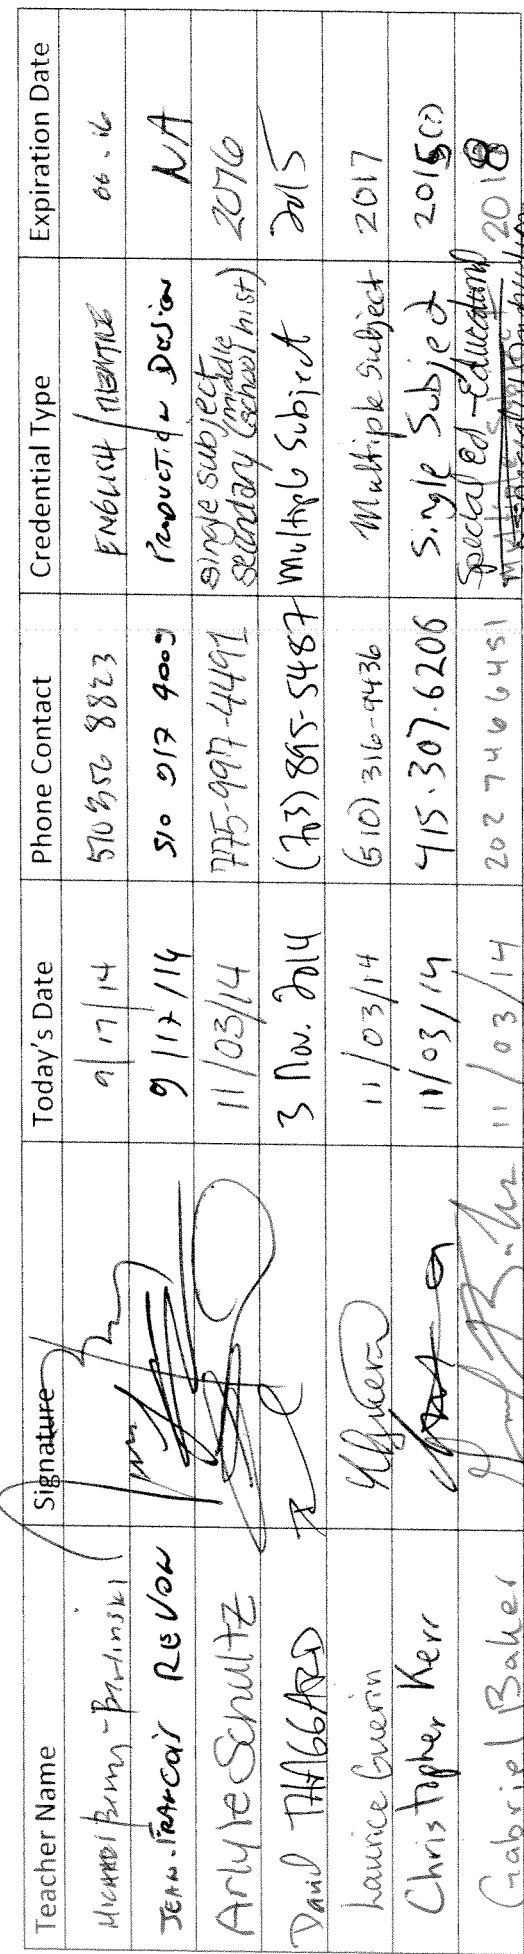 Teacher Name Signature Today's Date Phone Contact Credential Type Expiration Date
9/17/14 510 356 8823 ENGLISH / 06.16
JEAN-FRANCOIS REVON 9/17/14 510 917 9009 PRODUCTION DESIGN NA
Arlyte Schultz 11/03/14 775-997-4491 single subject secondary (middle school hist) 2016
David THAGGARD 3 Nov. 2014 895-5487 Multiple Subject 2015
Laurice Guerin 11/03/14 (510) 316-9436 Multiple Subject 2017
Christopher Kerr 11/03/14 415.307.6206 Single Subject 2015(?)
Gabriel Baker 11/03/14 202 746 6451 Special ed - Educational 2018